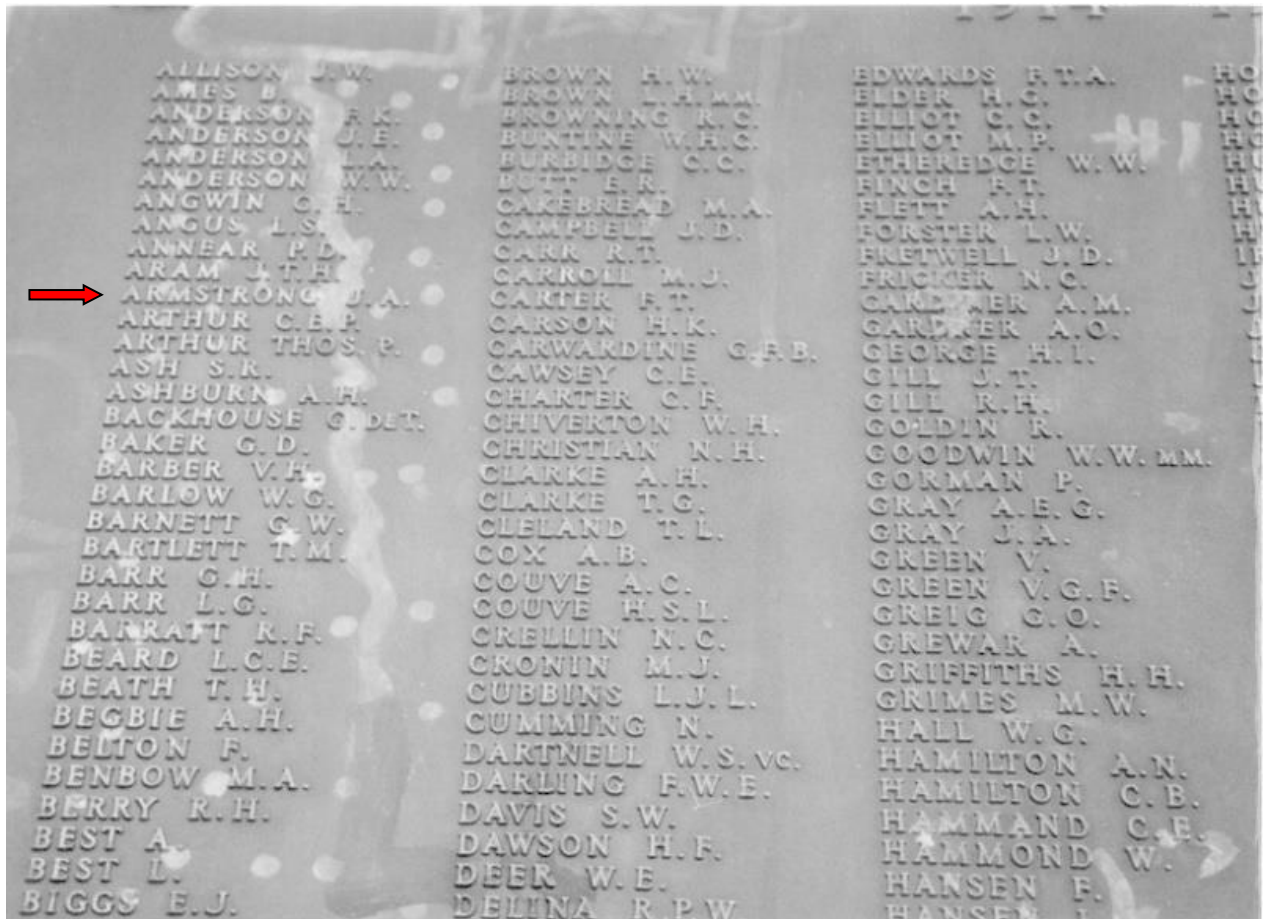 ALLISON J.W.
AMES B.
ANDERSON F.K.
ANDERSON J.E.
ANDERSON L.A.
ANDERSON W.W.
ANGWIN G.H.
ANGUS L.S.
ANNEAR P.D.
ARAM J.T.H.
ARMSTRONG J.A.
ARTHUR C.E.P.
ARTHUR THOS P.
ASH S.R.
ASHBURN A.H.
BACKHOUSE G. DET.
BAKER G.D.
BARBER V.H.
BARLOW W.G.
BARNETT G.W.
BARTLETT T.M.
BARR G.H.
BARR L.G.
BARRATT R.F.
BEARD L.C.E.
BEATH T.H.
BEGBIE A.H.
BELTON F.
BENBOW M.A.
BERRY R.H.
BEST A.
BEST L.
BIGGS E.J.
BROWN H.W.
BROWN L.H. MM.
BROWNING R.C.
BUNTINE W.H.C.
BURBIDGE C.C.
BUTT E.R.
CAKEBREAD M.A.
CAMPBELL J.D.
CARR R.T.
CARROLL M.J.
CARTER F.T.
CARSON H.K.
CARWARDINE G.F.B.
CAWSEY C.E.
CHARTER C.F.
CHIVERTON W.H.
CHRISTIAN N.H.
CLARKE A.H.
CLARKE T.G.
CLELAND T.L.
COX A.B.
COUVE A.C.
COUVE H.S.L.
CRELLIN N.C.
CRONIN M.J.
CUBBINS L.J.L.
CUMMING N.
DARTNELL W.S. VC.
DARLING F.W.E.
DAVIS S.W.
DAWSON H.F.
DEER W.E.
DELINA R.P.W.
EDWARDS F.T.A.
ELDER H.C.
ELLIOT C.C.
ELLIOT M.P.
ETHEREDGE W.W.
FINCH F.T.
FLETT A.H.
FORSTER L.W.
FRETWELL J.D.
FRICKER N.C.
GARDINER A.M.
GARDNER A.O.
GEORGE H.I.
GILL J.T.
GILL R.H.
GOLDIN R.
GOODWIN W.W. MM.
GORMAN P.
GRAY A.E.G.
GRAY J.A.
GREEN V.
GREEN V.G.F.
GREIG G.O.
GREWAR A.
GRIFFITHS H.H.
GRIMES M.W.
HALL W.G.
HAMILTON A.N.
HAMILTON C.B.
HAMMAND C.E.
HAMMOND W.
HANSEN F.
HANSEN